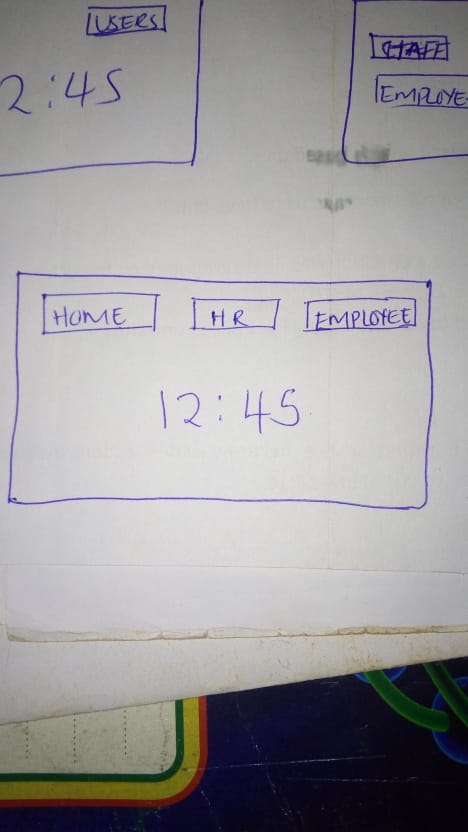 USERS
2:45
STAFF
EMPLOYE
HOME HR EMPLOYEE
12:45